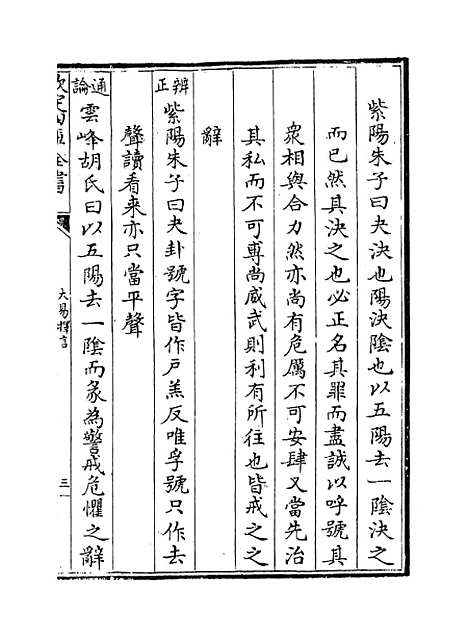 紫陽朱子曰夬決也陽決陰也以五陽去一陰決之
而已然其決之也必正名其罪而盡誠以呼號其
衆相與合力然亦尚有危厲不可安肆又當先治
其私而不可專尚威武則利有所往也皆戒之之
辭
辨正 紫陽朱子曰夬卦號字皆作戶羔反唯孚號只作去
聲讀看來亦只當平聲
通論 雲峰胡氏曰以五陽去一陰而彖為警戒危懼之辭
欽定四庫全書
大易擇言
三一